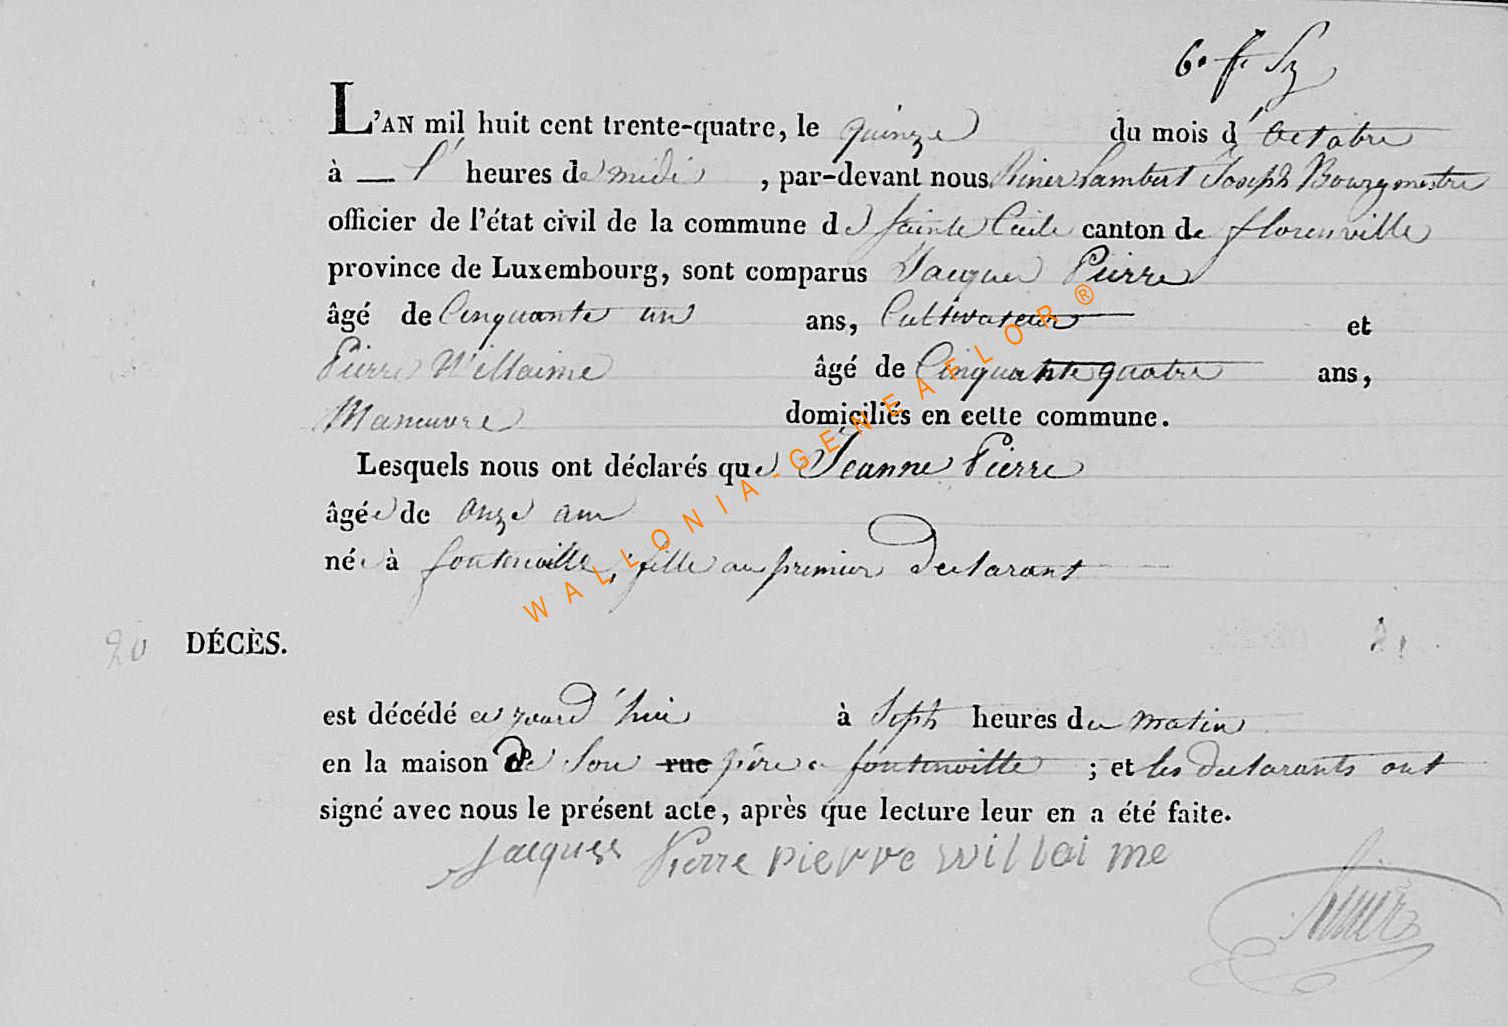 6. f. Sz
L'AN mil huit cent trente-quatre, le quinze du mois d'Octobre
à — l' heures de midi , par-devant nous Riner Lambert Joseph Bourgmestre
officier de l'état civil de la commune de Sainte Cecile canton de florenville
province de Luxembourg, sont comparus Jacques Pierre
âgé de Cinquante un ans, Cultivateur et
Pierre Willaime âgé de Cinquante quatre ans,
Maneuvre domiciliés en cette commune.
Lesquels nous ont déclarés que Jeanne Pierre
âgée de onze ans
née à fontenoille, fille au premier declarant
20 DÉCÈS. 21
est décédé aujourd'hui à Sept heures du matin
en la maison de Son rue père a fontenoille ; et les declarants ont
signé avec nous le présent acte, après que lecture leur en a été faite.
Jacques Pierre pierre willai me
Riner
WALLONIA-GENEAFLOR®